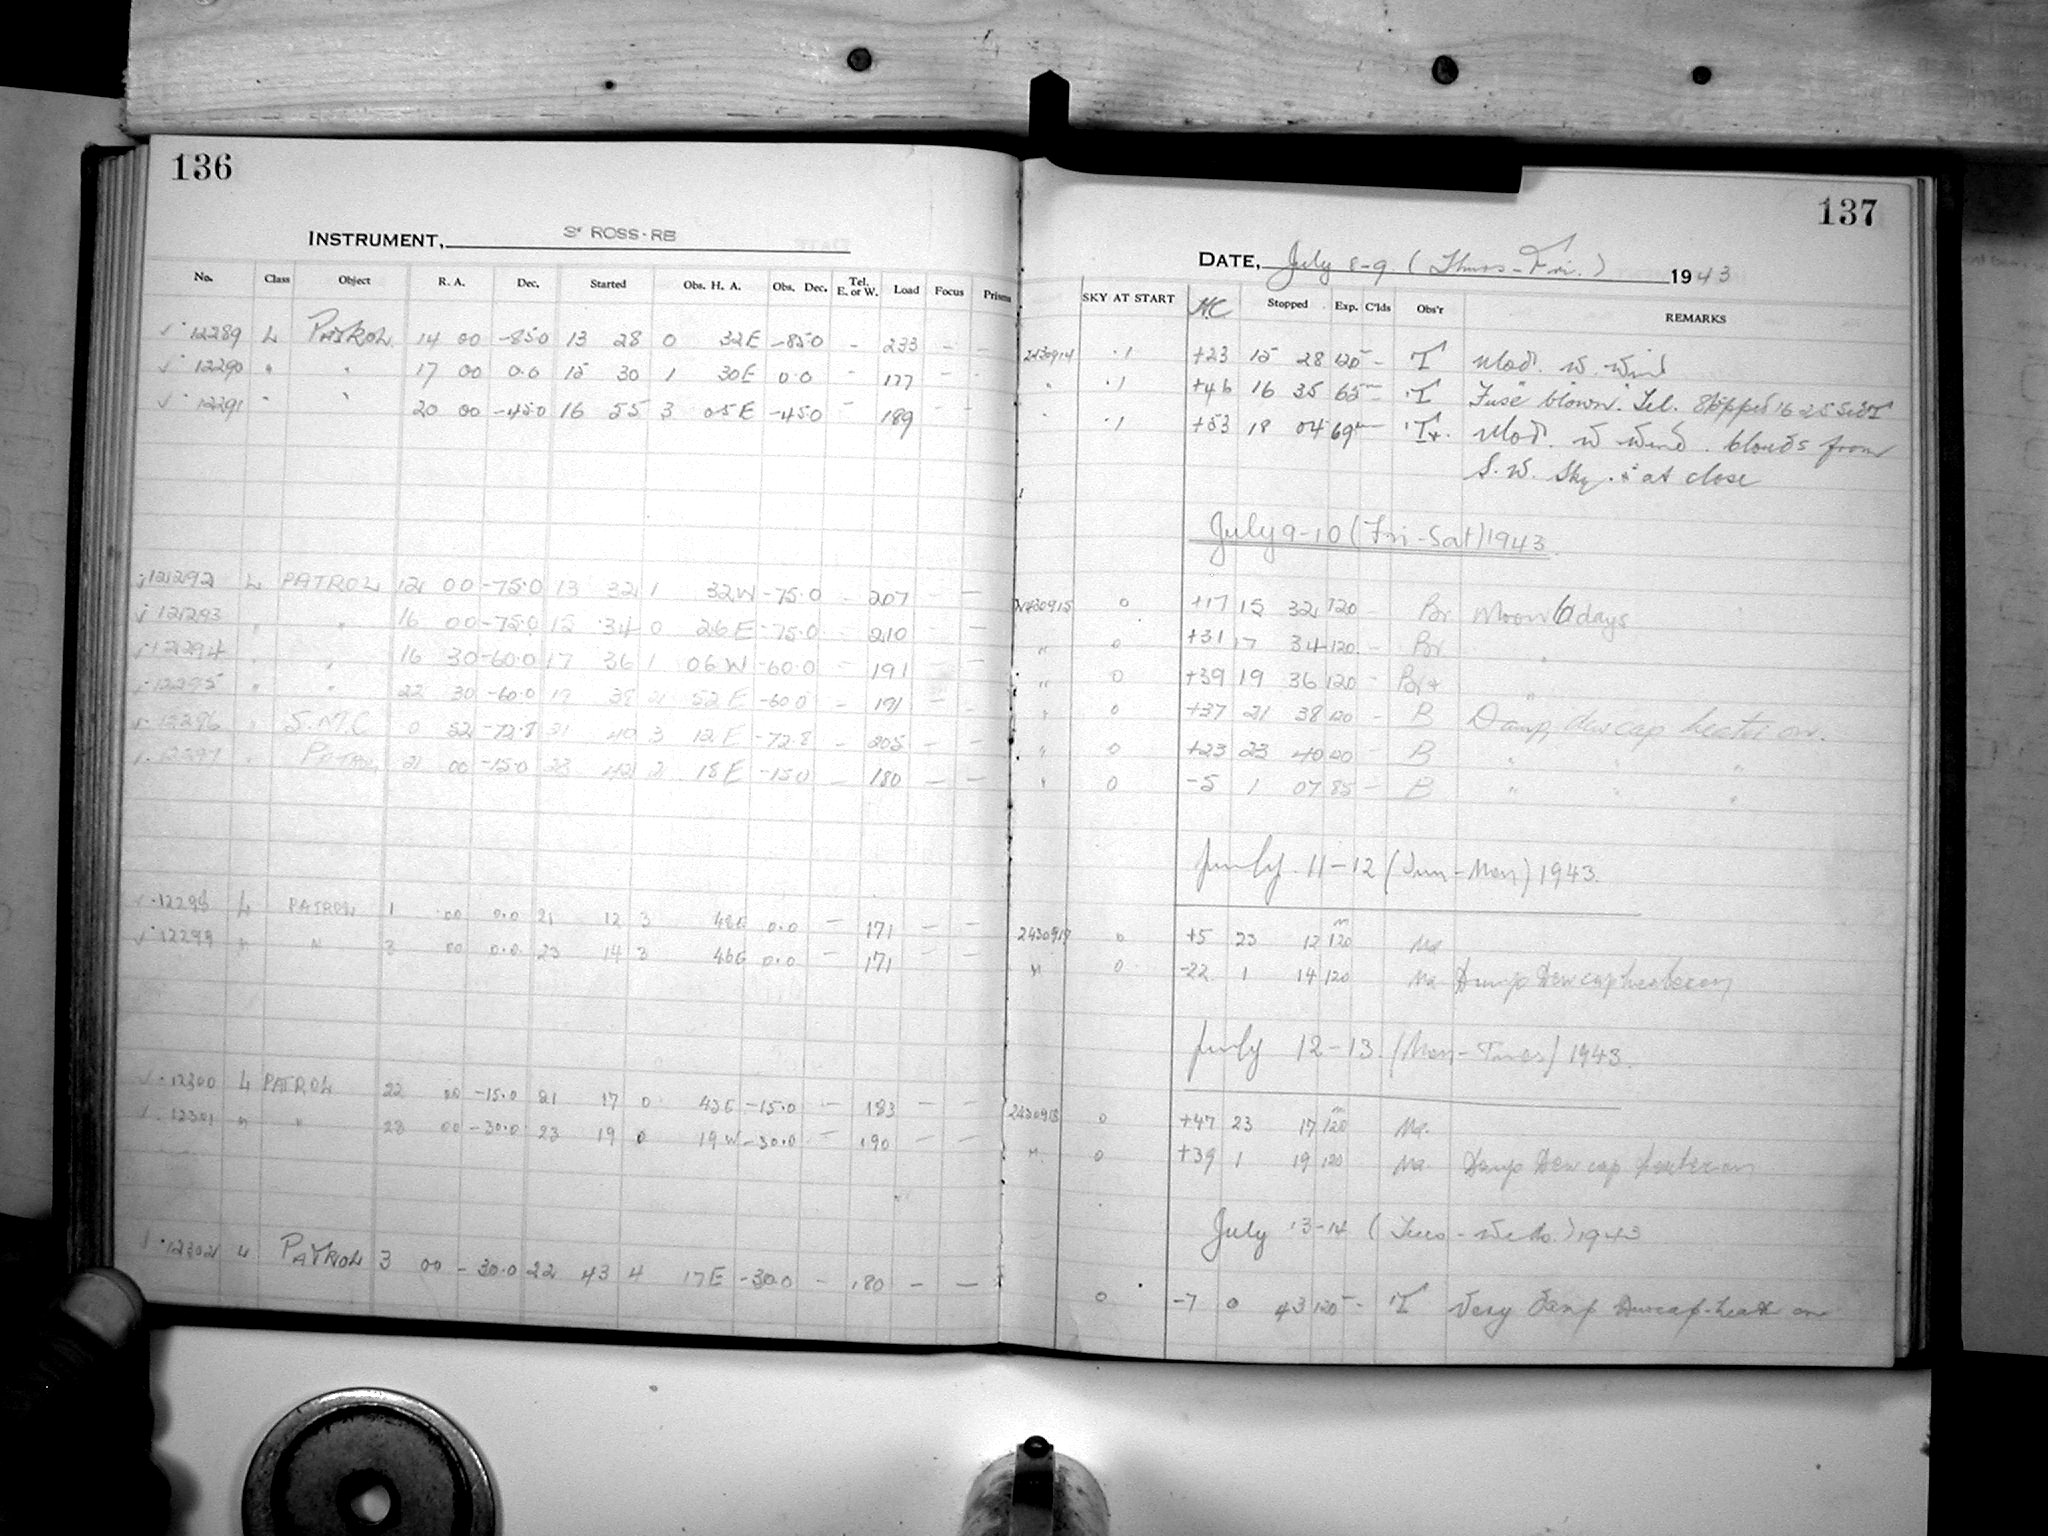 136
INSTRUMENT, 3" ROSS-RB
No. Class Object R. A. Dec. Started Obs. H. A. Obs. Dec. Tel. E. or W. Load Focus Prisms
12289 L PATROL 14 00 -85.0 13 28 0 32E -85.0 - 233 - -
12290 " " 17 00 0.0 15 30 1 30E 0.0 - 177 - -
12291 " " 20 00 -45.0 16 55 3 05E -45.0 189 - -
12292 L PATROL 12 00 -75.0 13 32 1 32W -75.0 - 207 - -
12293 " " 16 00 -75.0 15 34 0 26E -75.0 - 210 - -
12294 " " 16 30 -60.0 17 36 1 06W -60.0 - 191 - -
12295 " " 22 30 -60.0 19 38 2 52E -60.0 - 191 - -
12296 " S.M.C 0 52 -72.8 21 40 3 12E -72.8 - 205 - -
12297 " PATROL 21 00 -15.0 23 42 2 18E -15.0 - 180 - -
12298 L PATROL 1 00 0.0 21 12 3 48E 0.0 - 171 - -
12299 " " 3 00 0.0 23 14 3 46E 0.0 - 171 - -
12300 L PATROL 22 00 -15.0 21 17 0 43E -15.0 - 183 - -
12301 " " 23 00 -30.0 23 19 0 19W -30.0 - 190 - -
12302 L PATROL 3 00 -30.0 22 43 4 17E -30.0 - 180 - -
137
DATE, July 8-9 (Thurs-Fri.) 1943
SKY AT START HC Stopped Exp. C'lds Obs'r REMARKS
2430914 .1 +23 15 28 120 - T Mod. W. Wind
" .1 +46 16 35 65 - T Fuse blown. Tel. stopped 16 25
" .1 +53 18 04 69 - T+. Mod. W Wind. Clouds from
S.W. Sky at close
July 9-10 (Fri-Sat) 1943.
2430915 0 +17 15 32 120 - Br Moon 6 days
" 0 +31 17 34 120 - Br "
" 0 +39 19 36 120 - Br+ "
" 0 +37 21 38 120 - B Damp, dewcap heater on.
" 0 +23 23 40 120 - B " " "
" 0 -5 1 07 85 - B " " "
July 11-12 (Sun-Mon) 1943.
2430917 0 +5 23 12 120 Ma
" 0 -22 1 14 120 Ma Damp Dewcap heater on
July 12-13 (Mon-Tues) 1943.
2430918 0 +47 23 17 120 Ma.
" 0 +39 1 19 120 Ma. Damp Dewcap heater on
July 13-14 (Tues-Weds.) 1943
0 -7 0 43 120 - T Very damp Dewcap-heater on